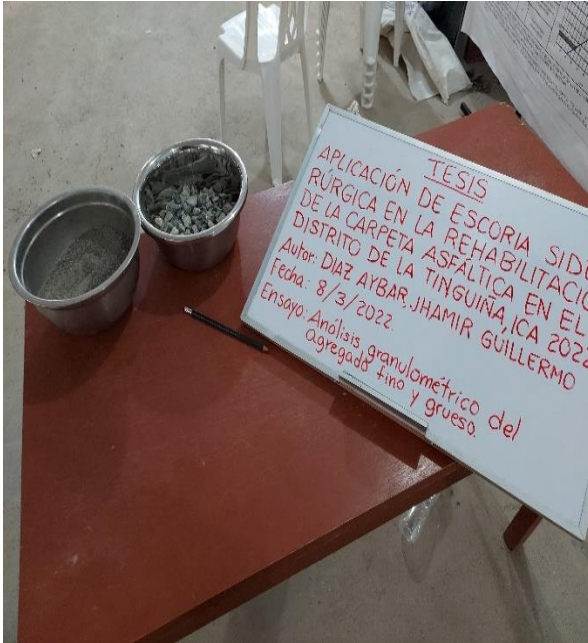 TESIS
APLICACIÓN DE ESCORIA SIDE
RÚRGICA EN LA REHABILITACIÓ
DE LA CARPETA ASFÁLTICA EN EL
DISTRITO DE LA TINGUIÑA, ICA 2022
Autor: DIAZ AYBAR, JHAMIR GUILLERMO
Fecha: 8/3/2022.
Ensayo: Análisis granulométrico del
agregado fino y grueso.